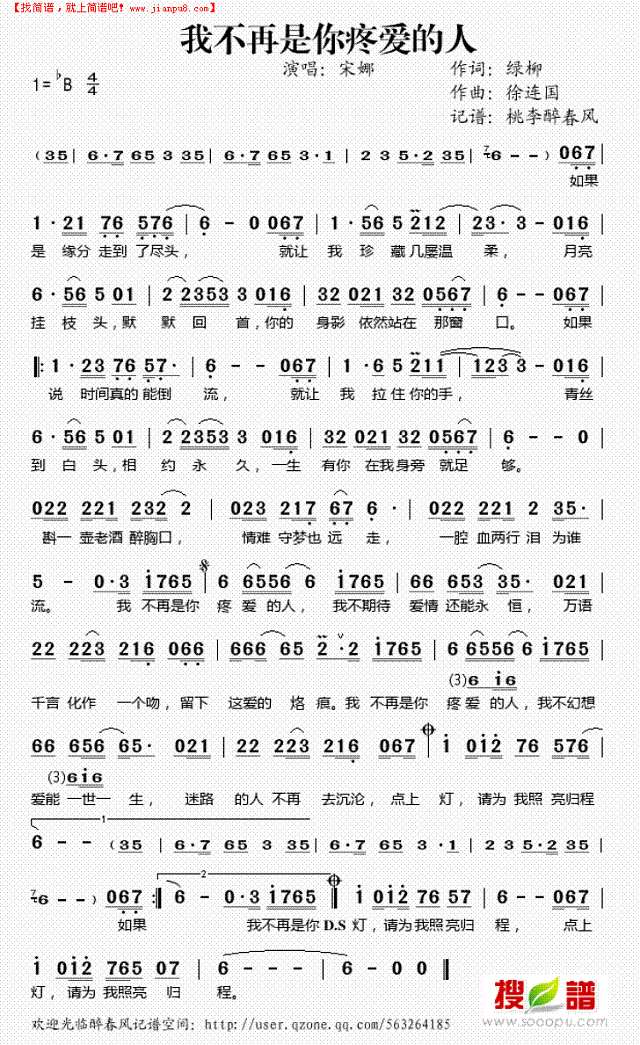 【找简谱，就上简谱吧! www.jianpu8.com】
我不再是你疼爱的人
演唱：宋娜 作词：绿柳
1=♭B 4/4
作曲：徐连国
记谱：桃李醉春风
（35｜6·7 65 3 35｜6·7 65 3·1｜2 3 5·2 35｜⁷6 - -）067｜
如果
1·21 76 576｜6 - 0 067｜1·56 5 212｜23·3 - 016｜
是 缘分 走到 了尽头， 就让 我 珍 藏几屡温 柔， 月亮
6·56 5 01｜2 2353 3 016｜32 021 32 0567｜6 - - 067｜
挂 枝 头，默 默 回 首，你的 身影 依然站在 那窗 口。 如果
‖:1·23 76 57·｜6 - - 067｜1·6 5 211｜123 3 - 016｜
说 时间真的能倒 流， 就让 我 拉住你的手， 青丝
6·56 5 01｜2 2353 3 016｜32 021 32 0567｜6 - - 0｜
到 白头，相 约永 久，一生 有你 在我身旁 就足 够。
022 221 232 2｜023 217 67 6·｜022 221 2 35·｜
斟一 壶老酒 醉胸口， 情难 守梦也 远 走， 一腔 血两行 泪 为谁
5 - 0·3 1765｜6 6556 6 1765｜66 653 35· 021｜
流。 我 不再是你 疼 爱 的人，我不期待 爱情 还能永 恒，万语
22 223 216 066｜666 65 2·2 1765｜6 6556 6 1765｜
(3)6 i6
千言 化作 一个吻，留下 这爱的 烙 痕。我 不再是你 疼爱 的人，我不幻想
66 656 65· 021｜22 223 216 067｜1 012 76 576｜
(3)6i6
爱能 一世一 生， 迷路 的人 不再 去沉沦，点上 灯，请为 我照 亮归程
1
6 - -（35｜6·7 65 3 35｜6·7 65 3·1｜2 3 5·2 35｜
2
⁷6 - -）067:‖6 - 0·3 1765‖1 012 76 57｜6 - - 067｜
如果 我不再是你 D.S 灯，请为我照亮归 程， 点上
1 012 765 07｜6 - - -｜6 - 0 0‖
灯，请为 我照亮 归 程。
搜谱
www.sooopu.com
欢迎光临醉春风记谱空间：http://user.qzone.qq.com/563264185